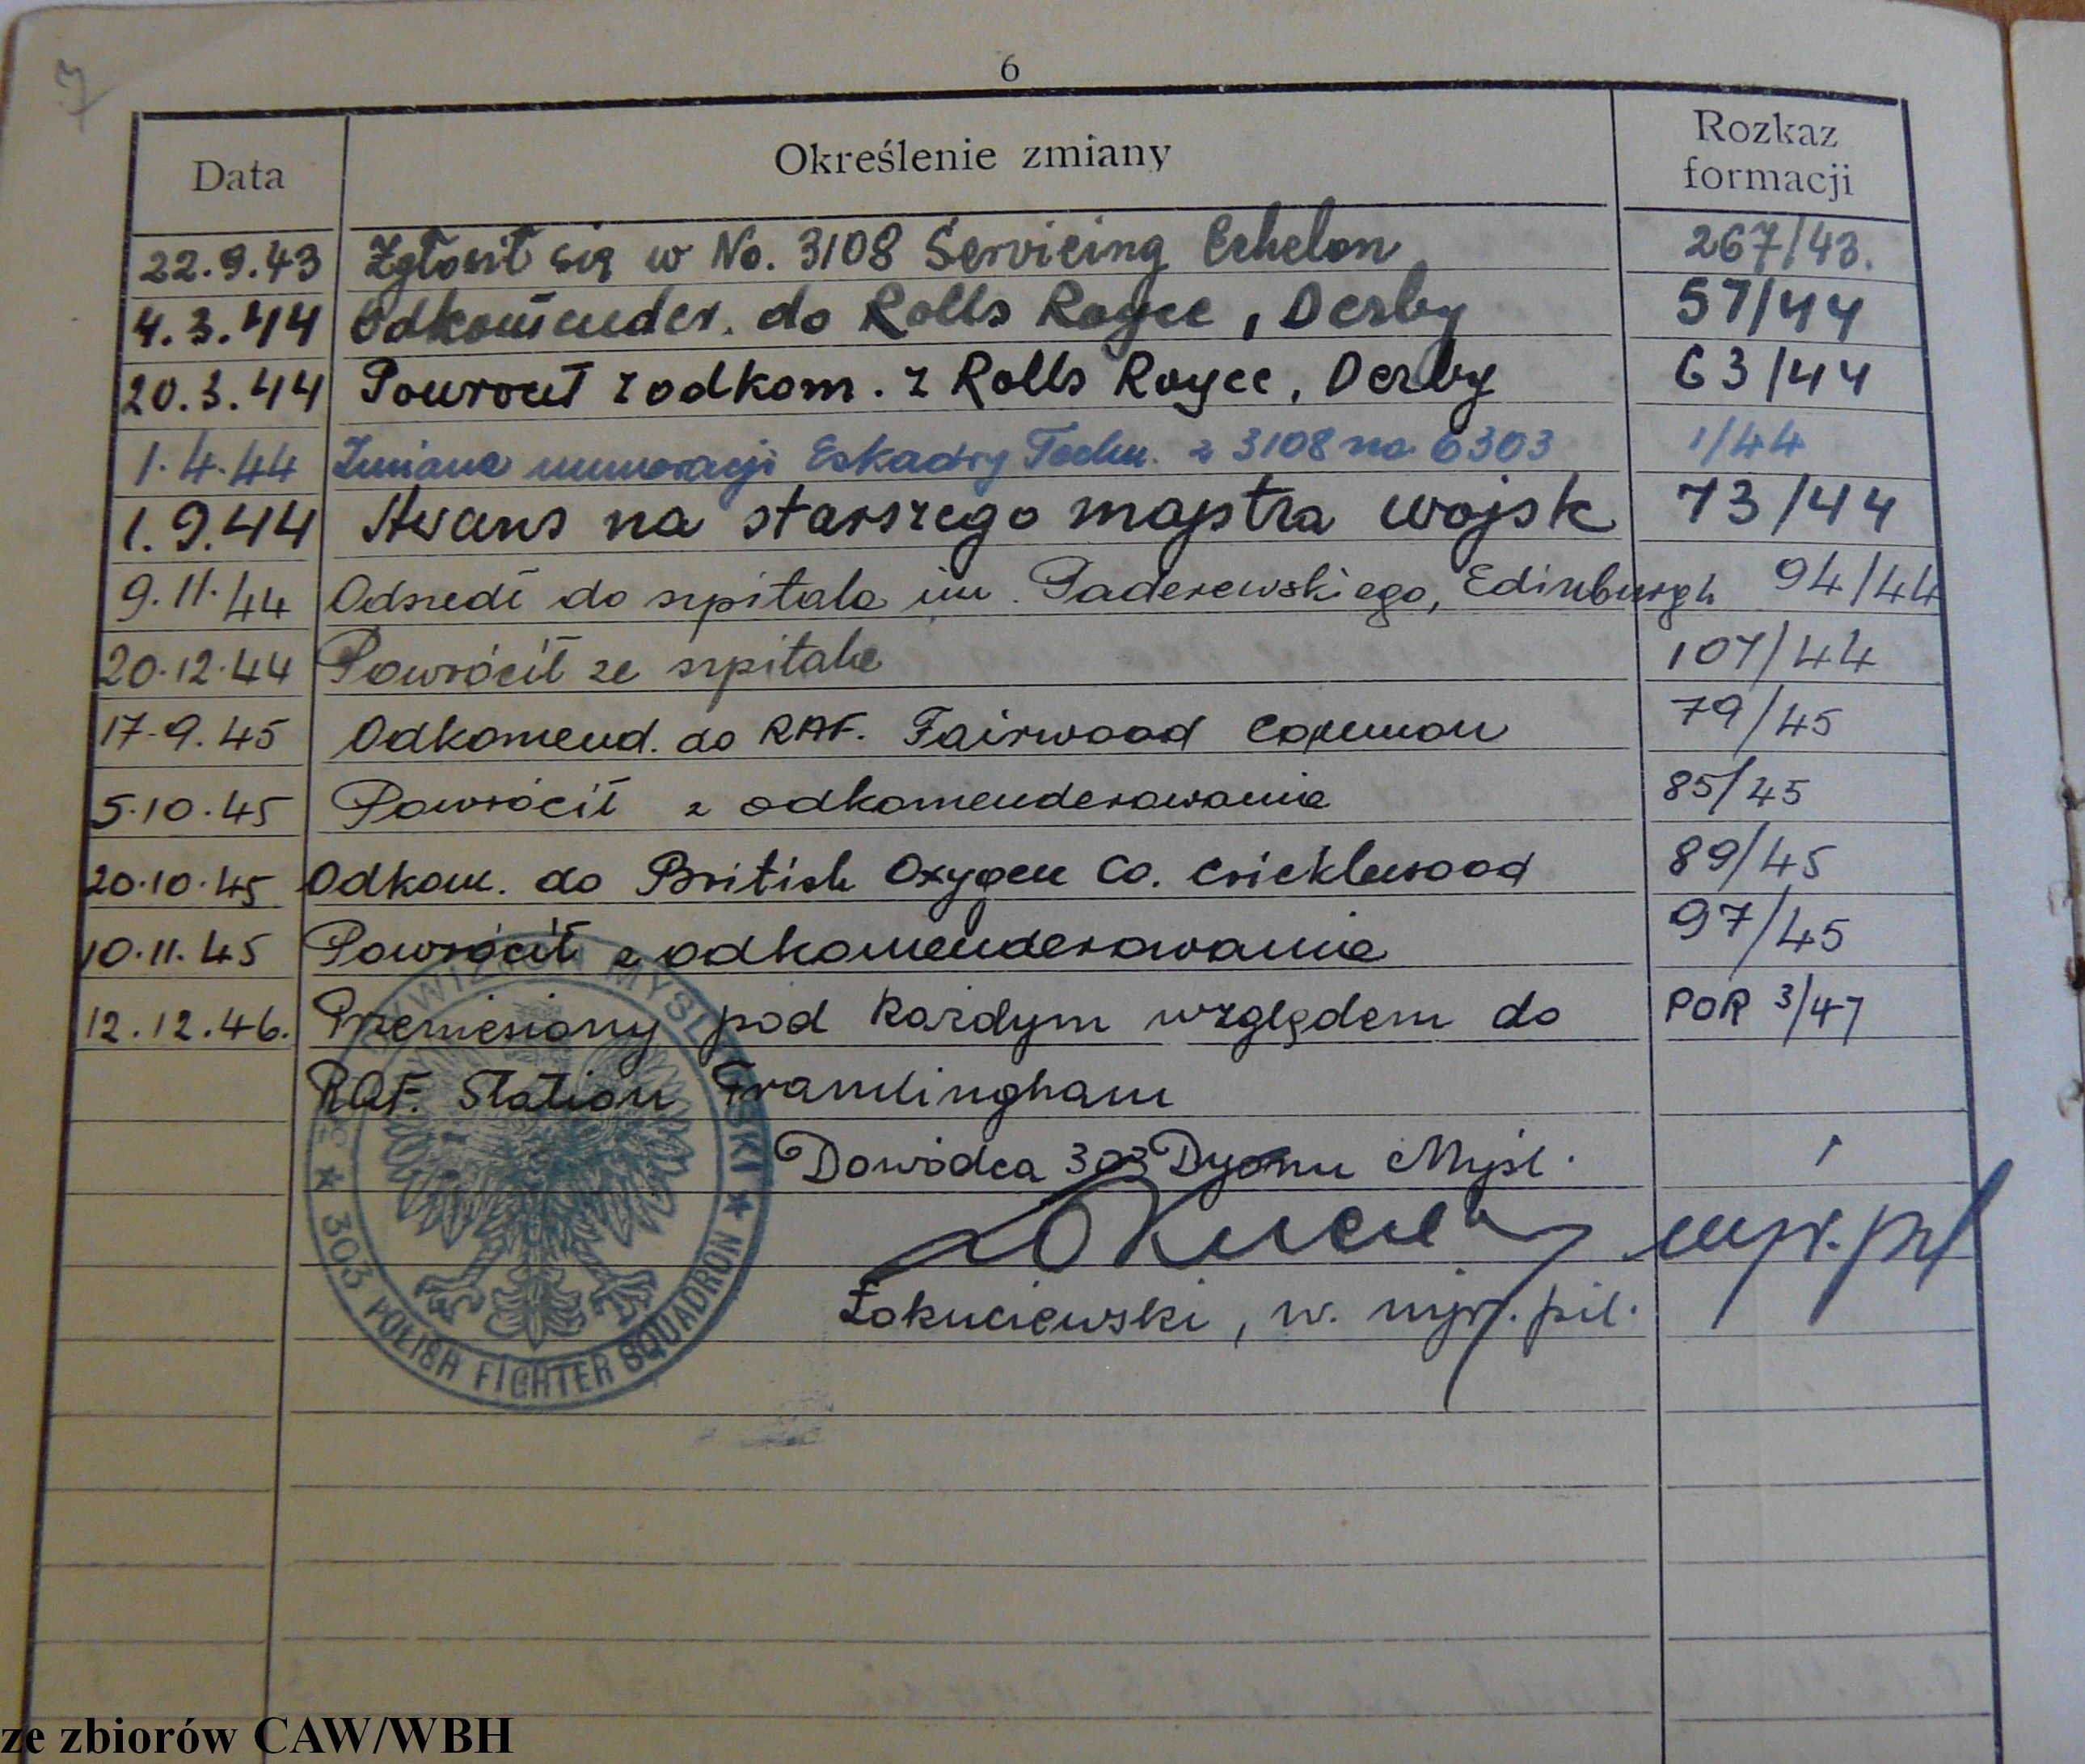 7
6
Data Określenie zmiany Rozkaz formacji
22.9.43 Zgłosił się w No. 3108 Servicing Echelon 267/43.
4.3.44 Odkomender. do Rolls Royce, Derby 57/44
20.3.44 Powrocił z odkom. z Rolls Royce, Derby 63/44
1.4.44 Zmiana numeracji Eskadry Techn. z 3108 na 6303 1/44
1.9.44 Awans na starszego majstra wojsk 73/44
9.11.44 Odszedł do szpitala im. Paderewskiego, Edinburgh 94/44
20.12.44 Powrócił ze szpitala 107/44
17.9.45 Odkomend. do RAF. Fairwood Common 79/45
5.10.45 Powrócił z odkomenderowania 85/45
20.10.45 Odkom. do British Oxygen Co. Cricklewood 89/45
10.11.45 Powrócił z odkomenderowania 97/45
12.12.46. Przeniesiony pod każdym względem do POR 3/47
RAF. Station Framlingham
Dowódca 303 Dyonu Myśl.
mjr. pil
Łokuciewski, w. mjr. pil.
DYWIZJON MYŚLIWSKI ★ 303 POLISH FIGHTER SQUADRON ★
ze zbiorów CAW/WBH